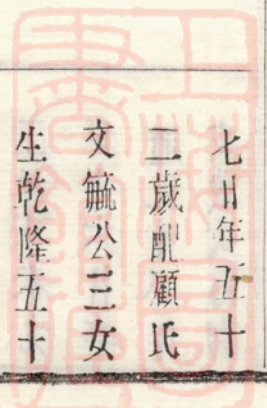 七日年五十
二歲配顧氏
文毓公三女
生乾隆五十